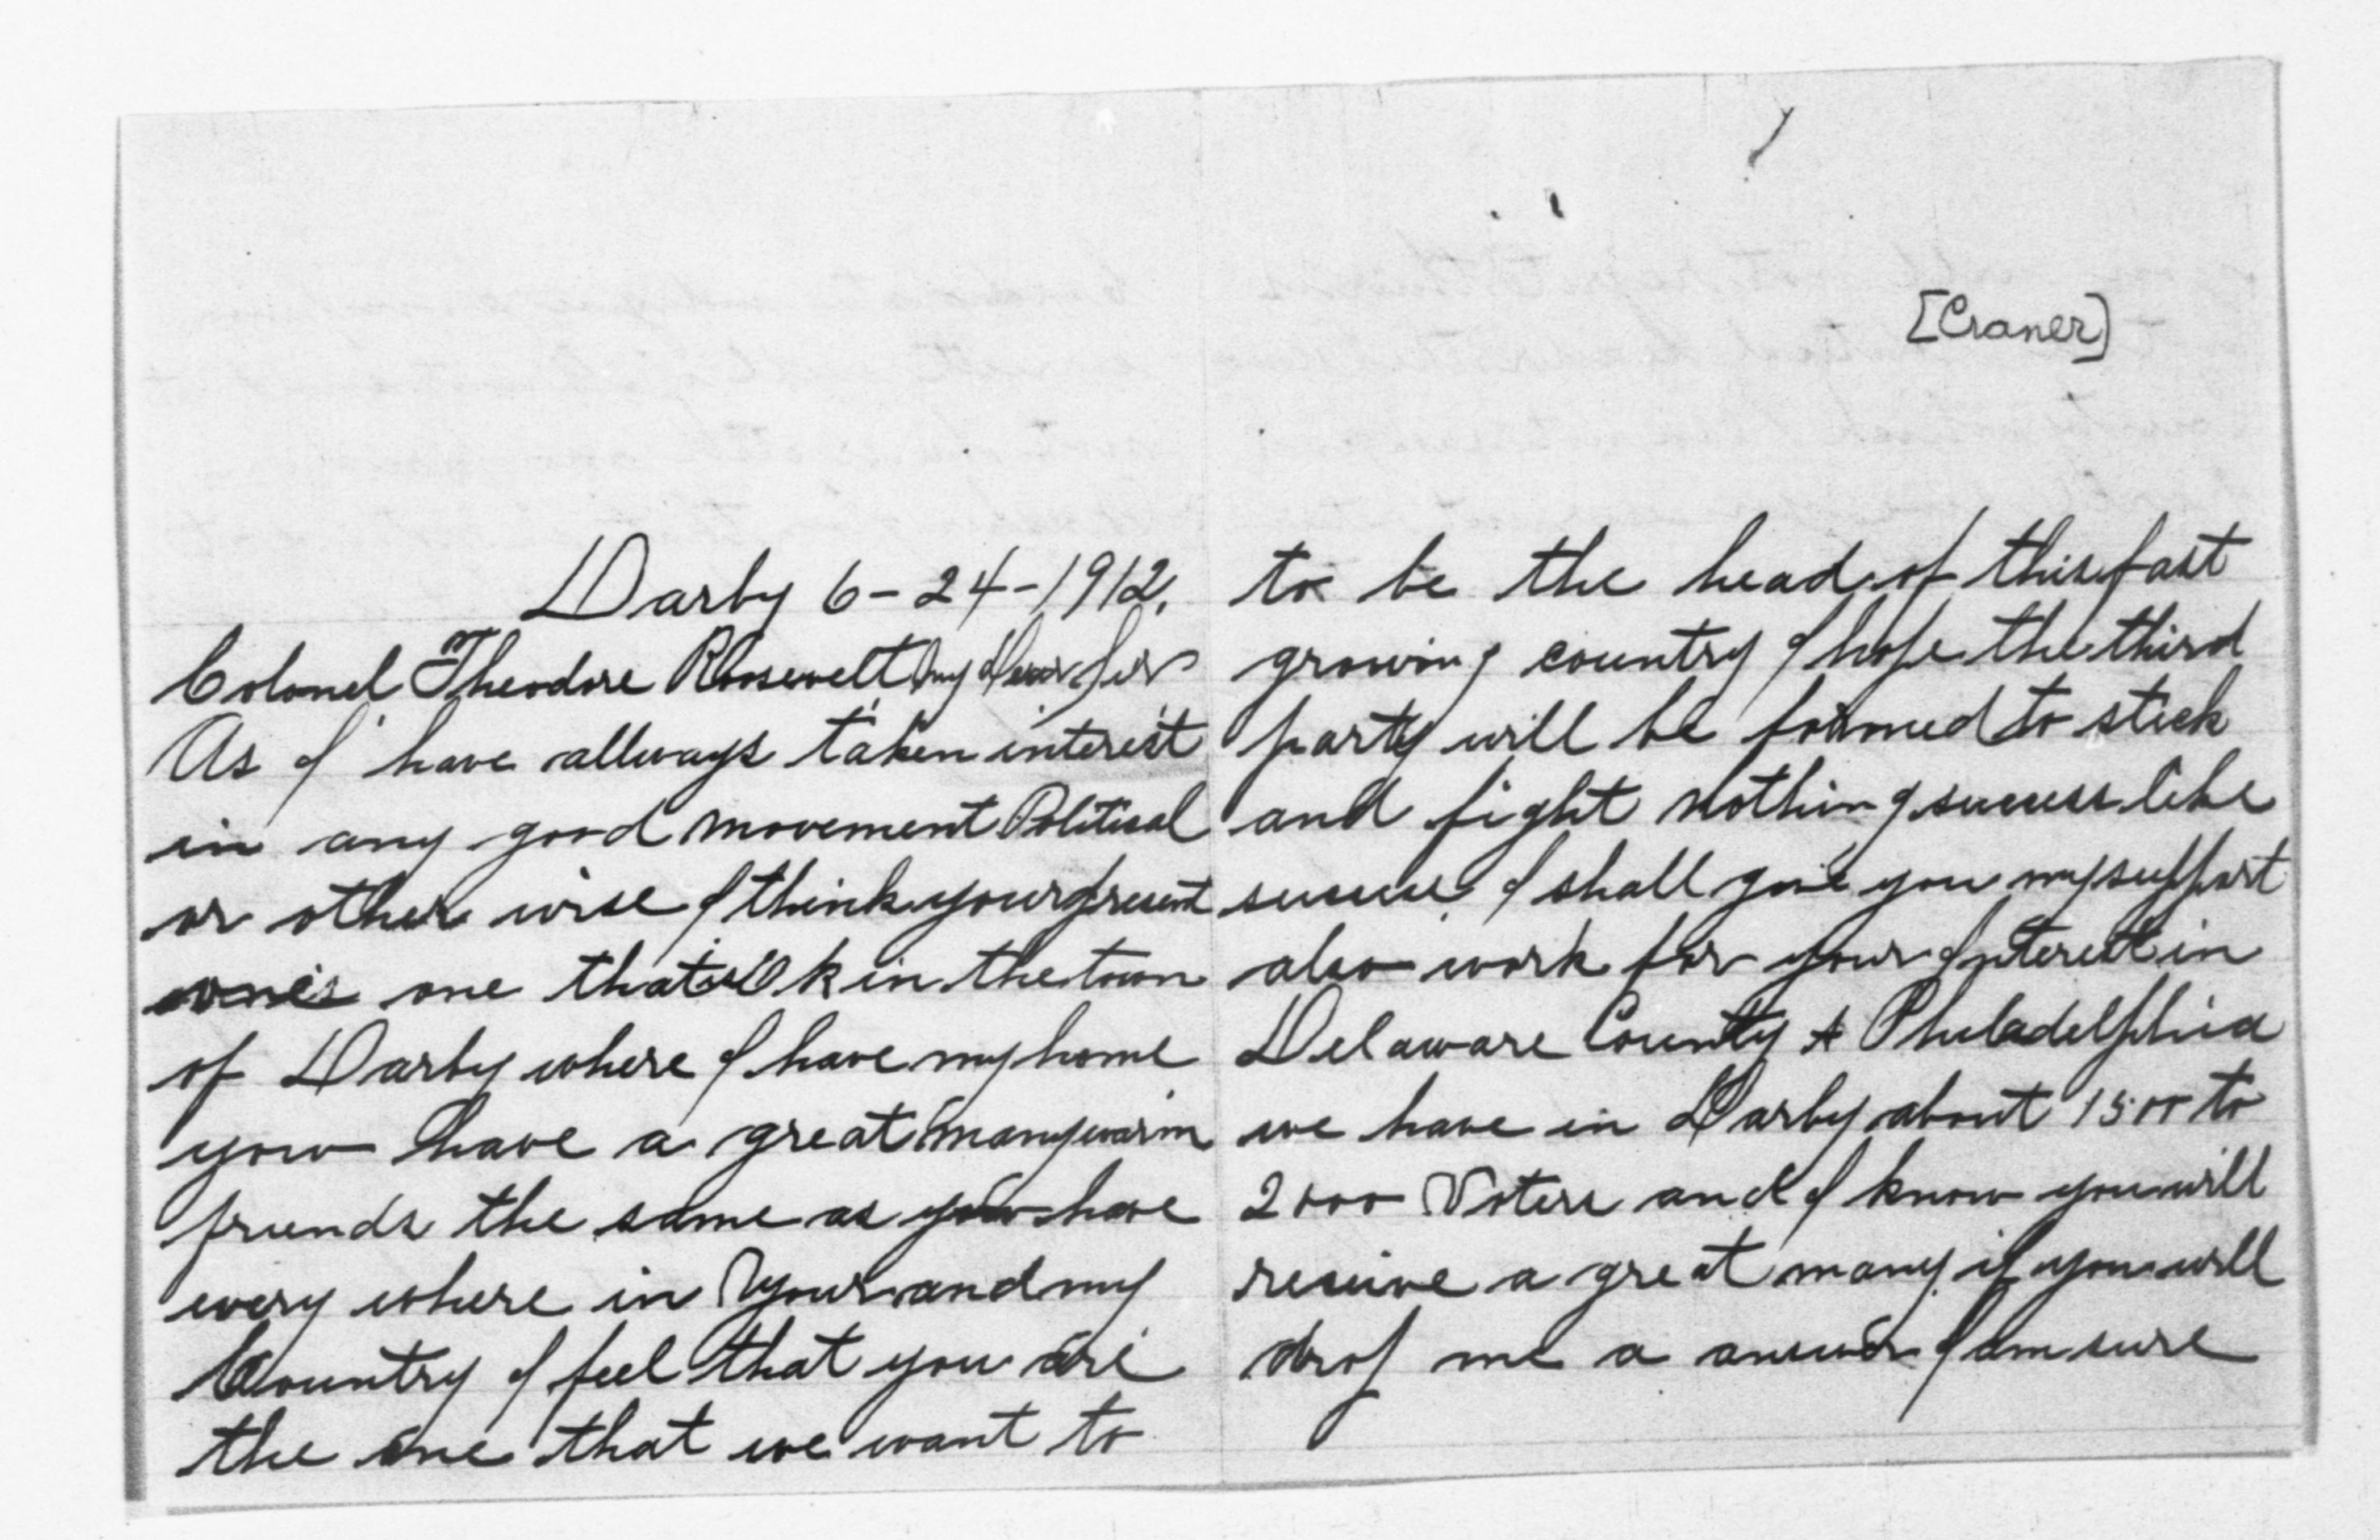 [Craner]
Darby 6-24-1912.
Colonel Theodore Roosevelt My Dear Sir
As I have allways taken interest
in any good movement Political
or other wise I think your present
one is one that is O k in the town
of Darby where I have my home
you have a great many warm
friends the same as you have
every where in Your and my
Country I feel that you are
the one that we want to
to be the head of this fast
growing country I hope the third
party will be formed to stick
and fight nothing success like
success I shall give you my support
also work for your Interest in
Delaware County & Philadelphia
we have in Darby about 1500 to
2000 Voters and I know you will
receive a great many if you will
drop me a answer I am sure